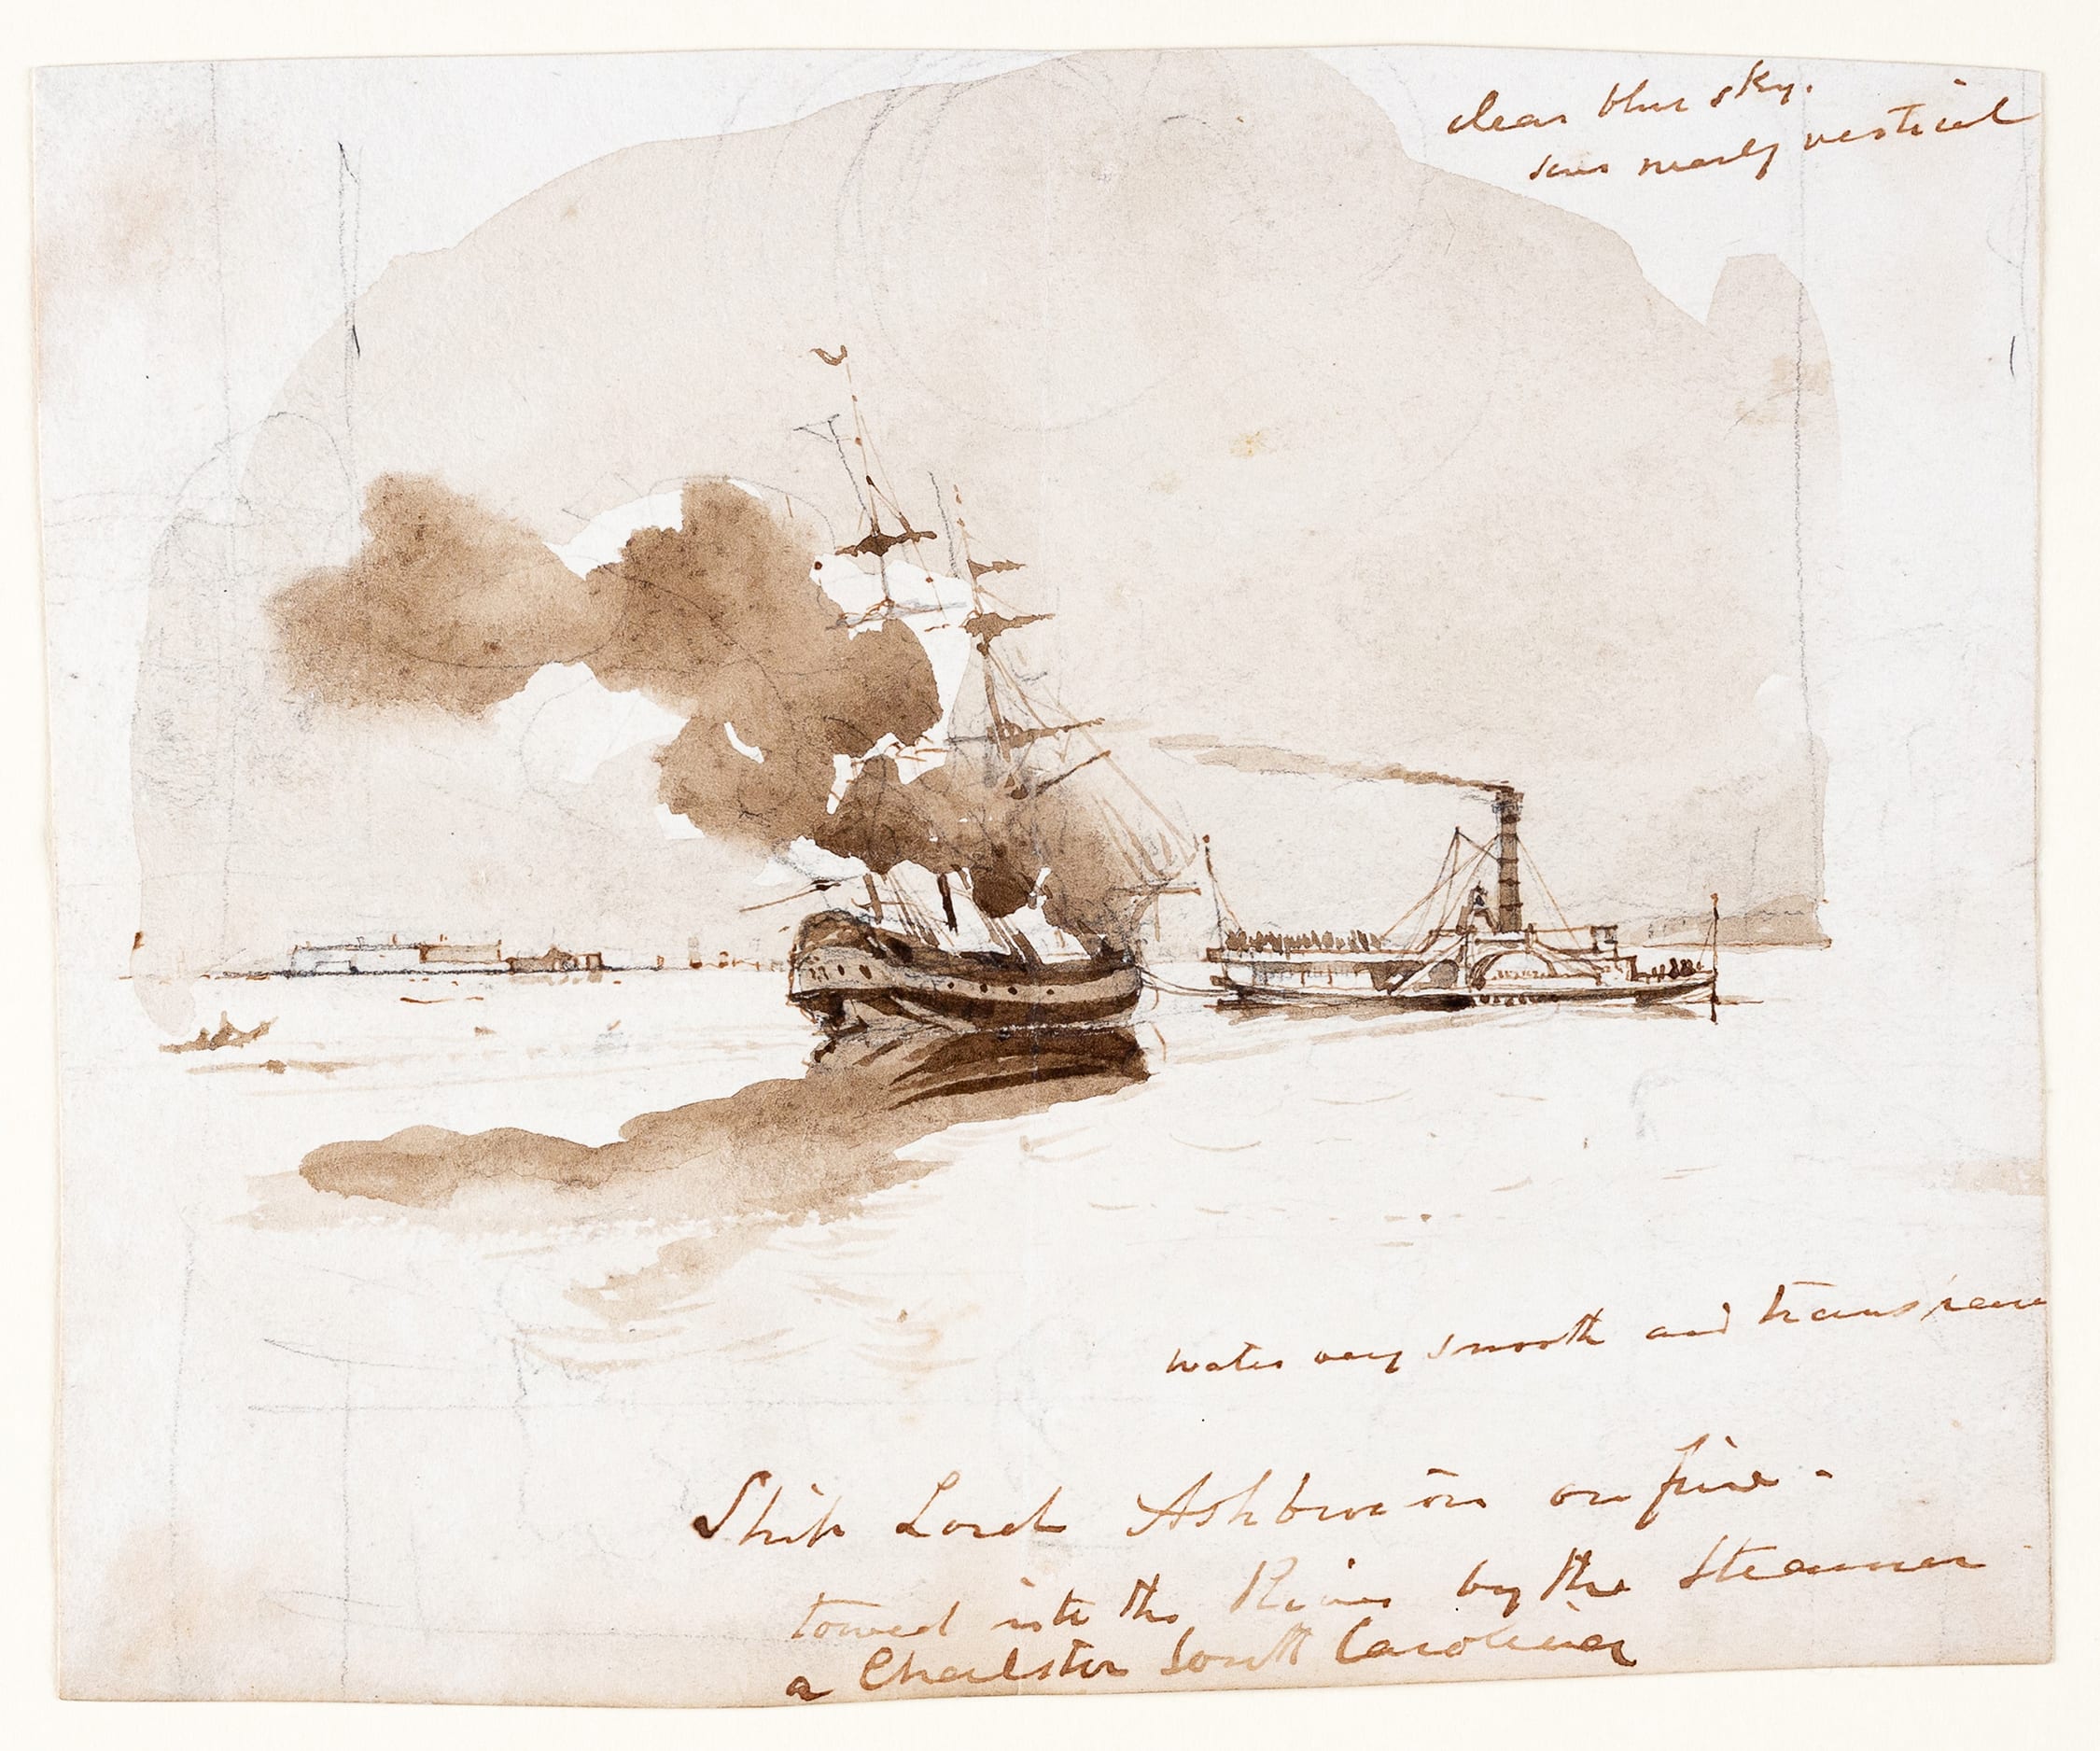 clear blue sky.
sun nearly vertical
water very smooth and
Ship Lord Ashburton on fire -
towed into the River by the Steamer
a Charlston South Carolina